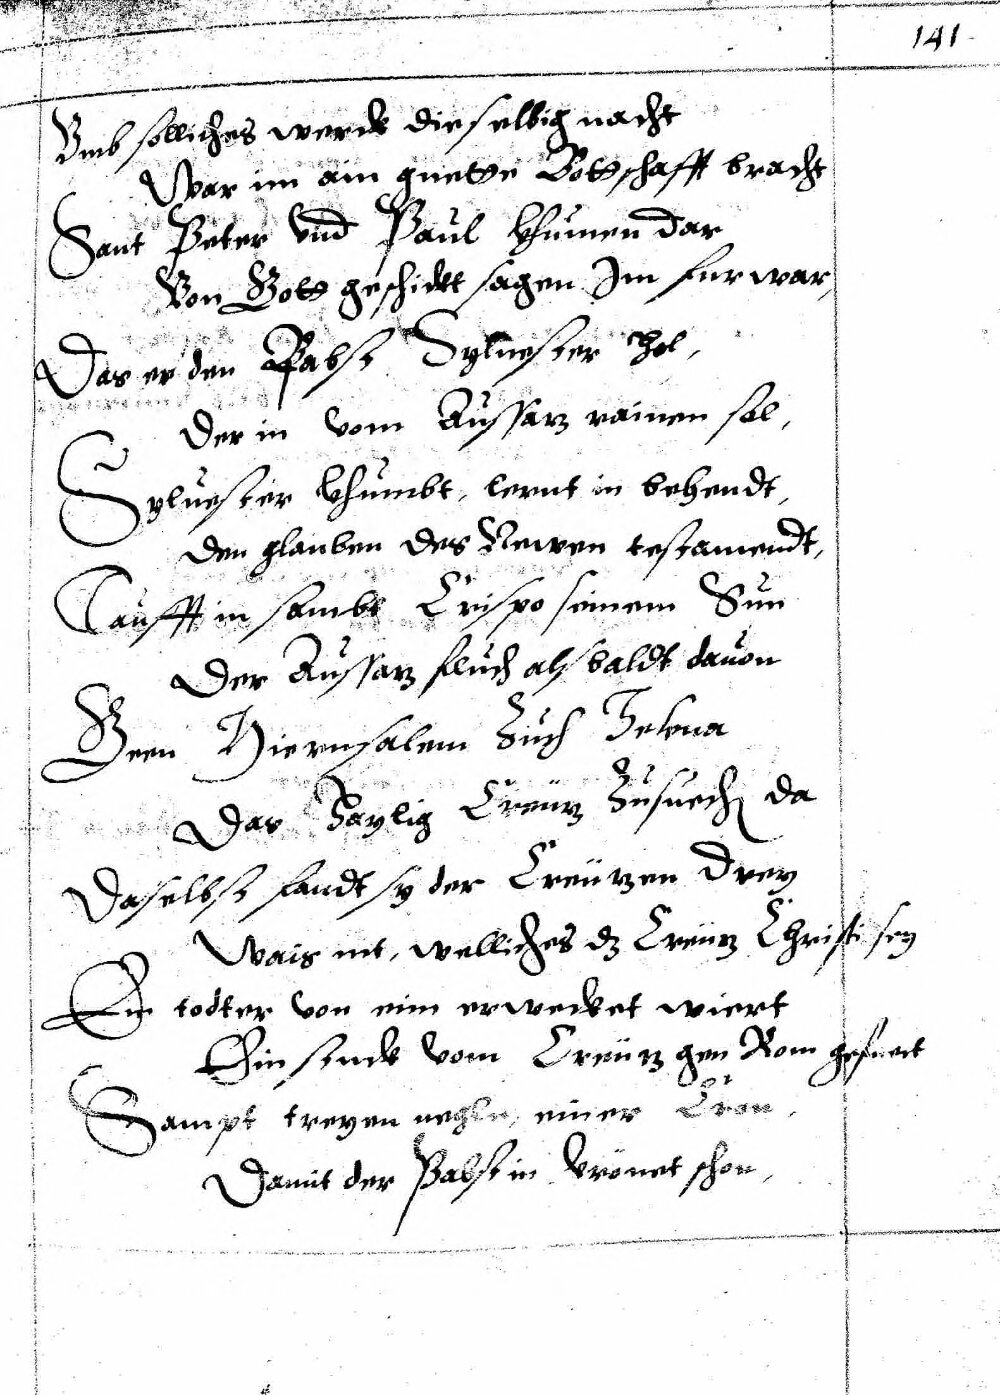 141
Vmb solliches werck die selbig nacht
War im ain guette Bottschafft bracht
Sant Peter vnd Paul khumen dar
Von Gott geschickt sagen Im furwar,
Das er den Pabst Syluester hol,
Der in vom Aussatz rainen sol,
Syluester khumbt, lernt in behendt,
Den glauben des Newen testamendt,
Taufft in sambt Crispo seinem Sun
Der Aussatz fluch alsbaldt dauon
Geen Hierusalem Zuch Helena
Das Haylig Creutz Zusuechen da
Daselbst fandt sy der Creützen drey
Wais nit, welliches dz Creutz Christi sey
Ein todter von eim erwecket wiert
Ein stuck vom Creütz gen Rom gefuert
Sampt treyen negln, einer Cron,
Damit der Pabst in krönet schon,